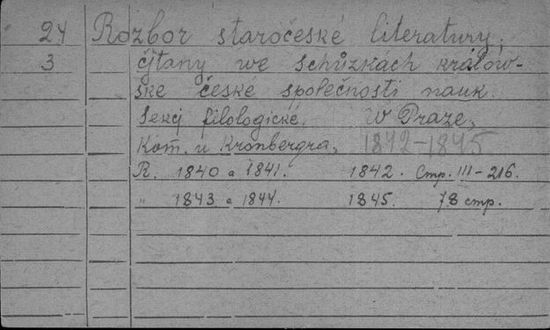 24 Rozbor staročeské literatury,
3 čjtany we schůzkách králow-
ske české společnosti nauk.
Sekcj filologické. W Praze,
Kom. u Kronbergra, 1842-1845
R. 1840 a 1841. 1842. Стр. III-216.
" 1843 a 1844. 1845. 78 стр.